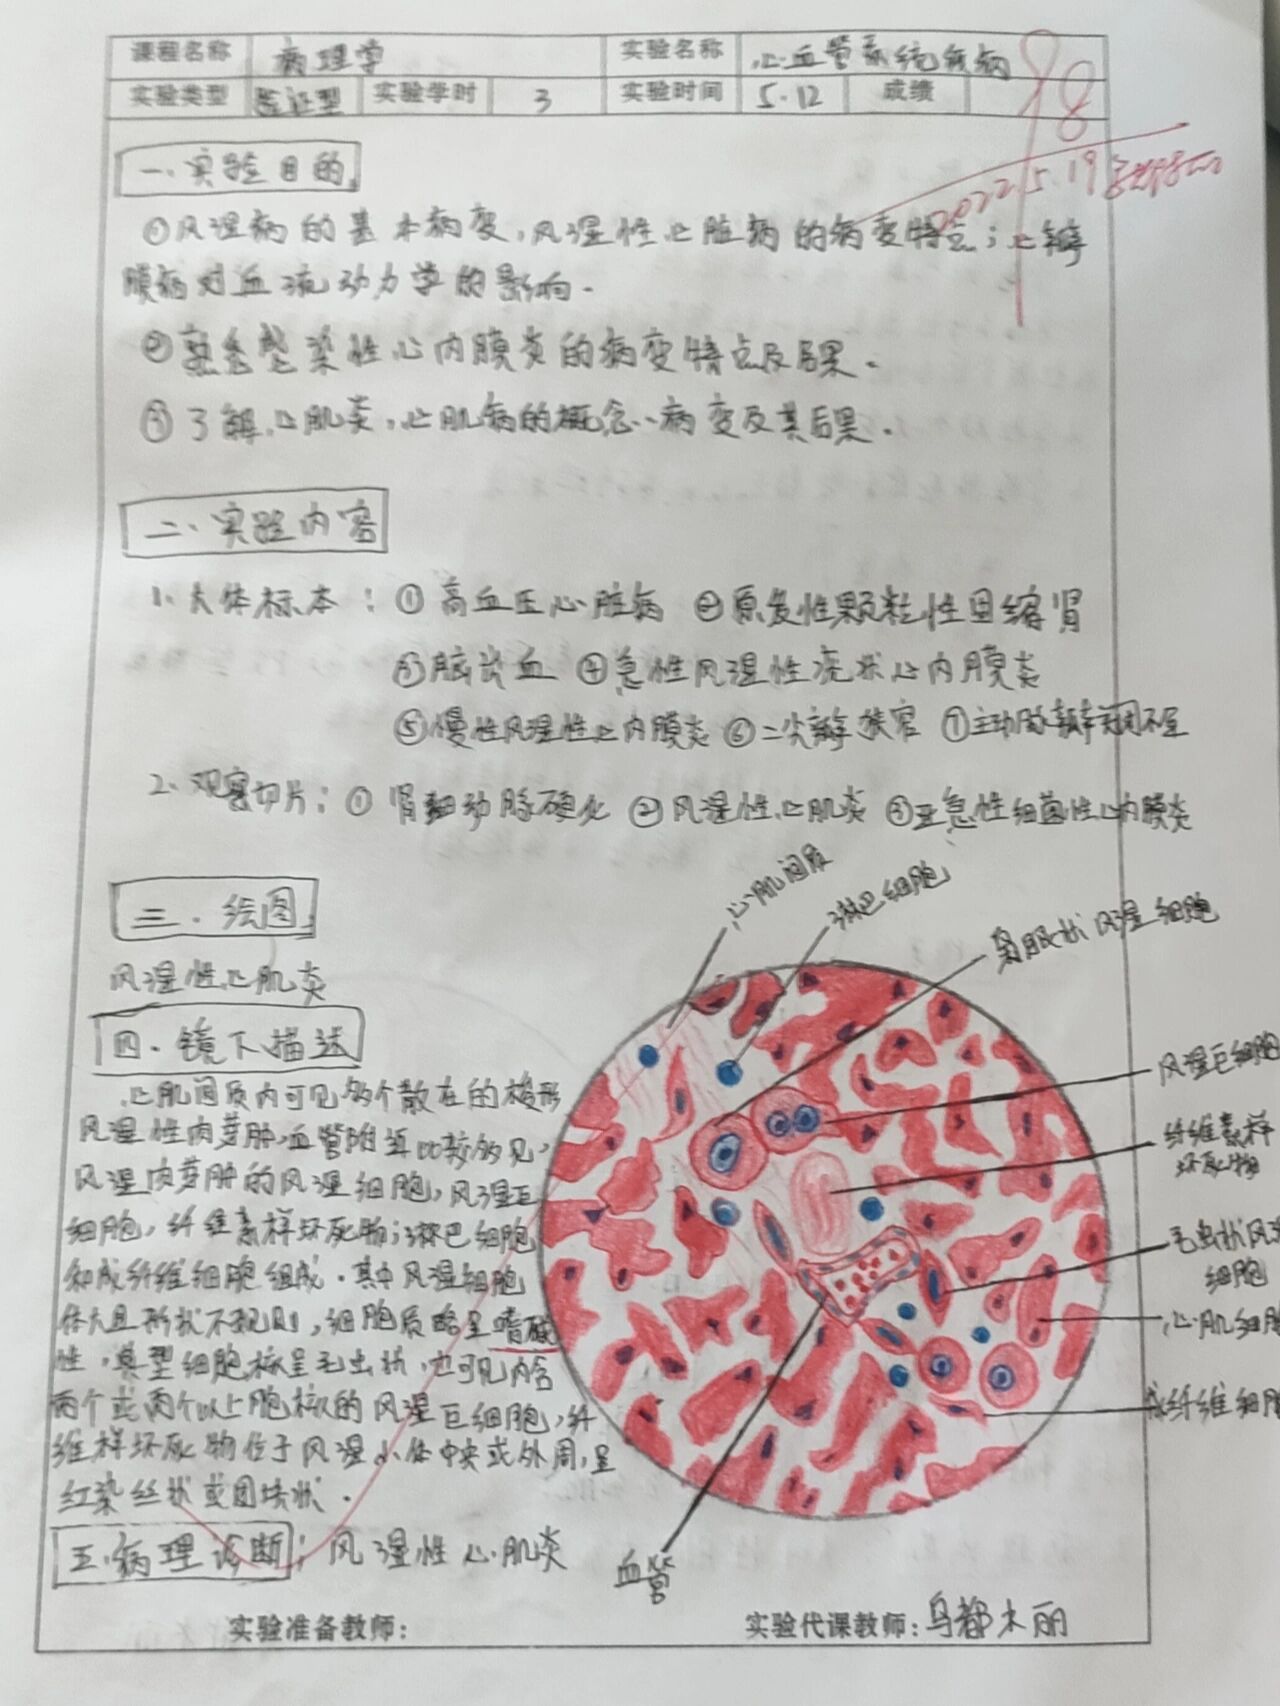 课程名称 病理学 实验名称 心血管系统疾病
实验类型 验证型 实验学时 3 实验时间 5.12 成绩
98
2022.5.19
一、实验目的
①风湿病的基本病变，风湿性心脏病的病变特点；心瓣
膜病对血流动力学的影响.
②熟悉感染性心内膜炎的病变特点及后果.
③了解心肌炎，心肌病的概念、病变及其后果.
二、实验内容
1、大体标本：①高血压心脏病 ②原发性颗粒性固缩肾
③脑出血 ④急性风湿性疣状心内膜炎
⑤慢性风湿性心内膜炎 ⑥二尖瓣狭窄 ⑦主动脉瓣关闭不全
2、观察切片：①肾细动脉硬化 ②风湿性心肌炎 ③亚急性细菌性心内膜炎
三.绘图
风湿性心肌炎
四.镜下描述
心肌间质内可见多个散在的梭形
风湿性肉芽肿，血管附近比较多见，
风湿肉芽肿的风湿细胞，风湿巨
细胞，纤维素样坏死物；淋巴细胞
和成纤维细胞组成.其中风湿细胞
体大且形状不规则，细胞质略呈嗜碱
性，典型细胞核呈毛虫状，也可见内含
两个或两个以上胞核的风湿巨细胞，纤
维样坏死物位于风湿小体中央或外周，呈
红染丝状或团块状.
心肌间质
淋巴细胞
枭眼状风湿细胞
风湿巨细胞
纤维素样
坏死物
毛虫状风湿
细胞
心肌细胞
成纤维细胞
血管
五.病理诊断：风湿性心肌炎
实验准备教师： 实验代课教师：乌都木丽